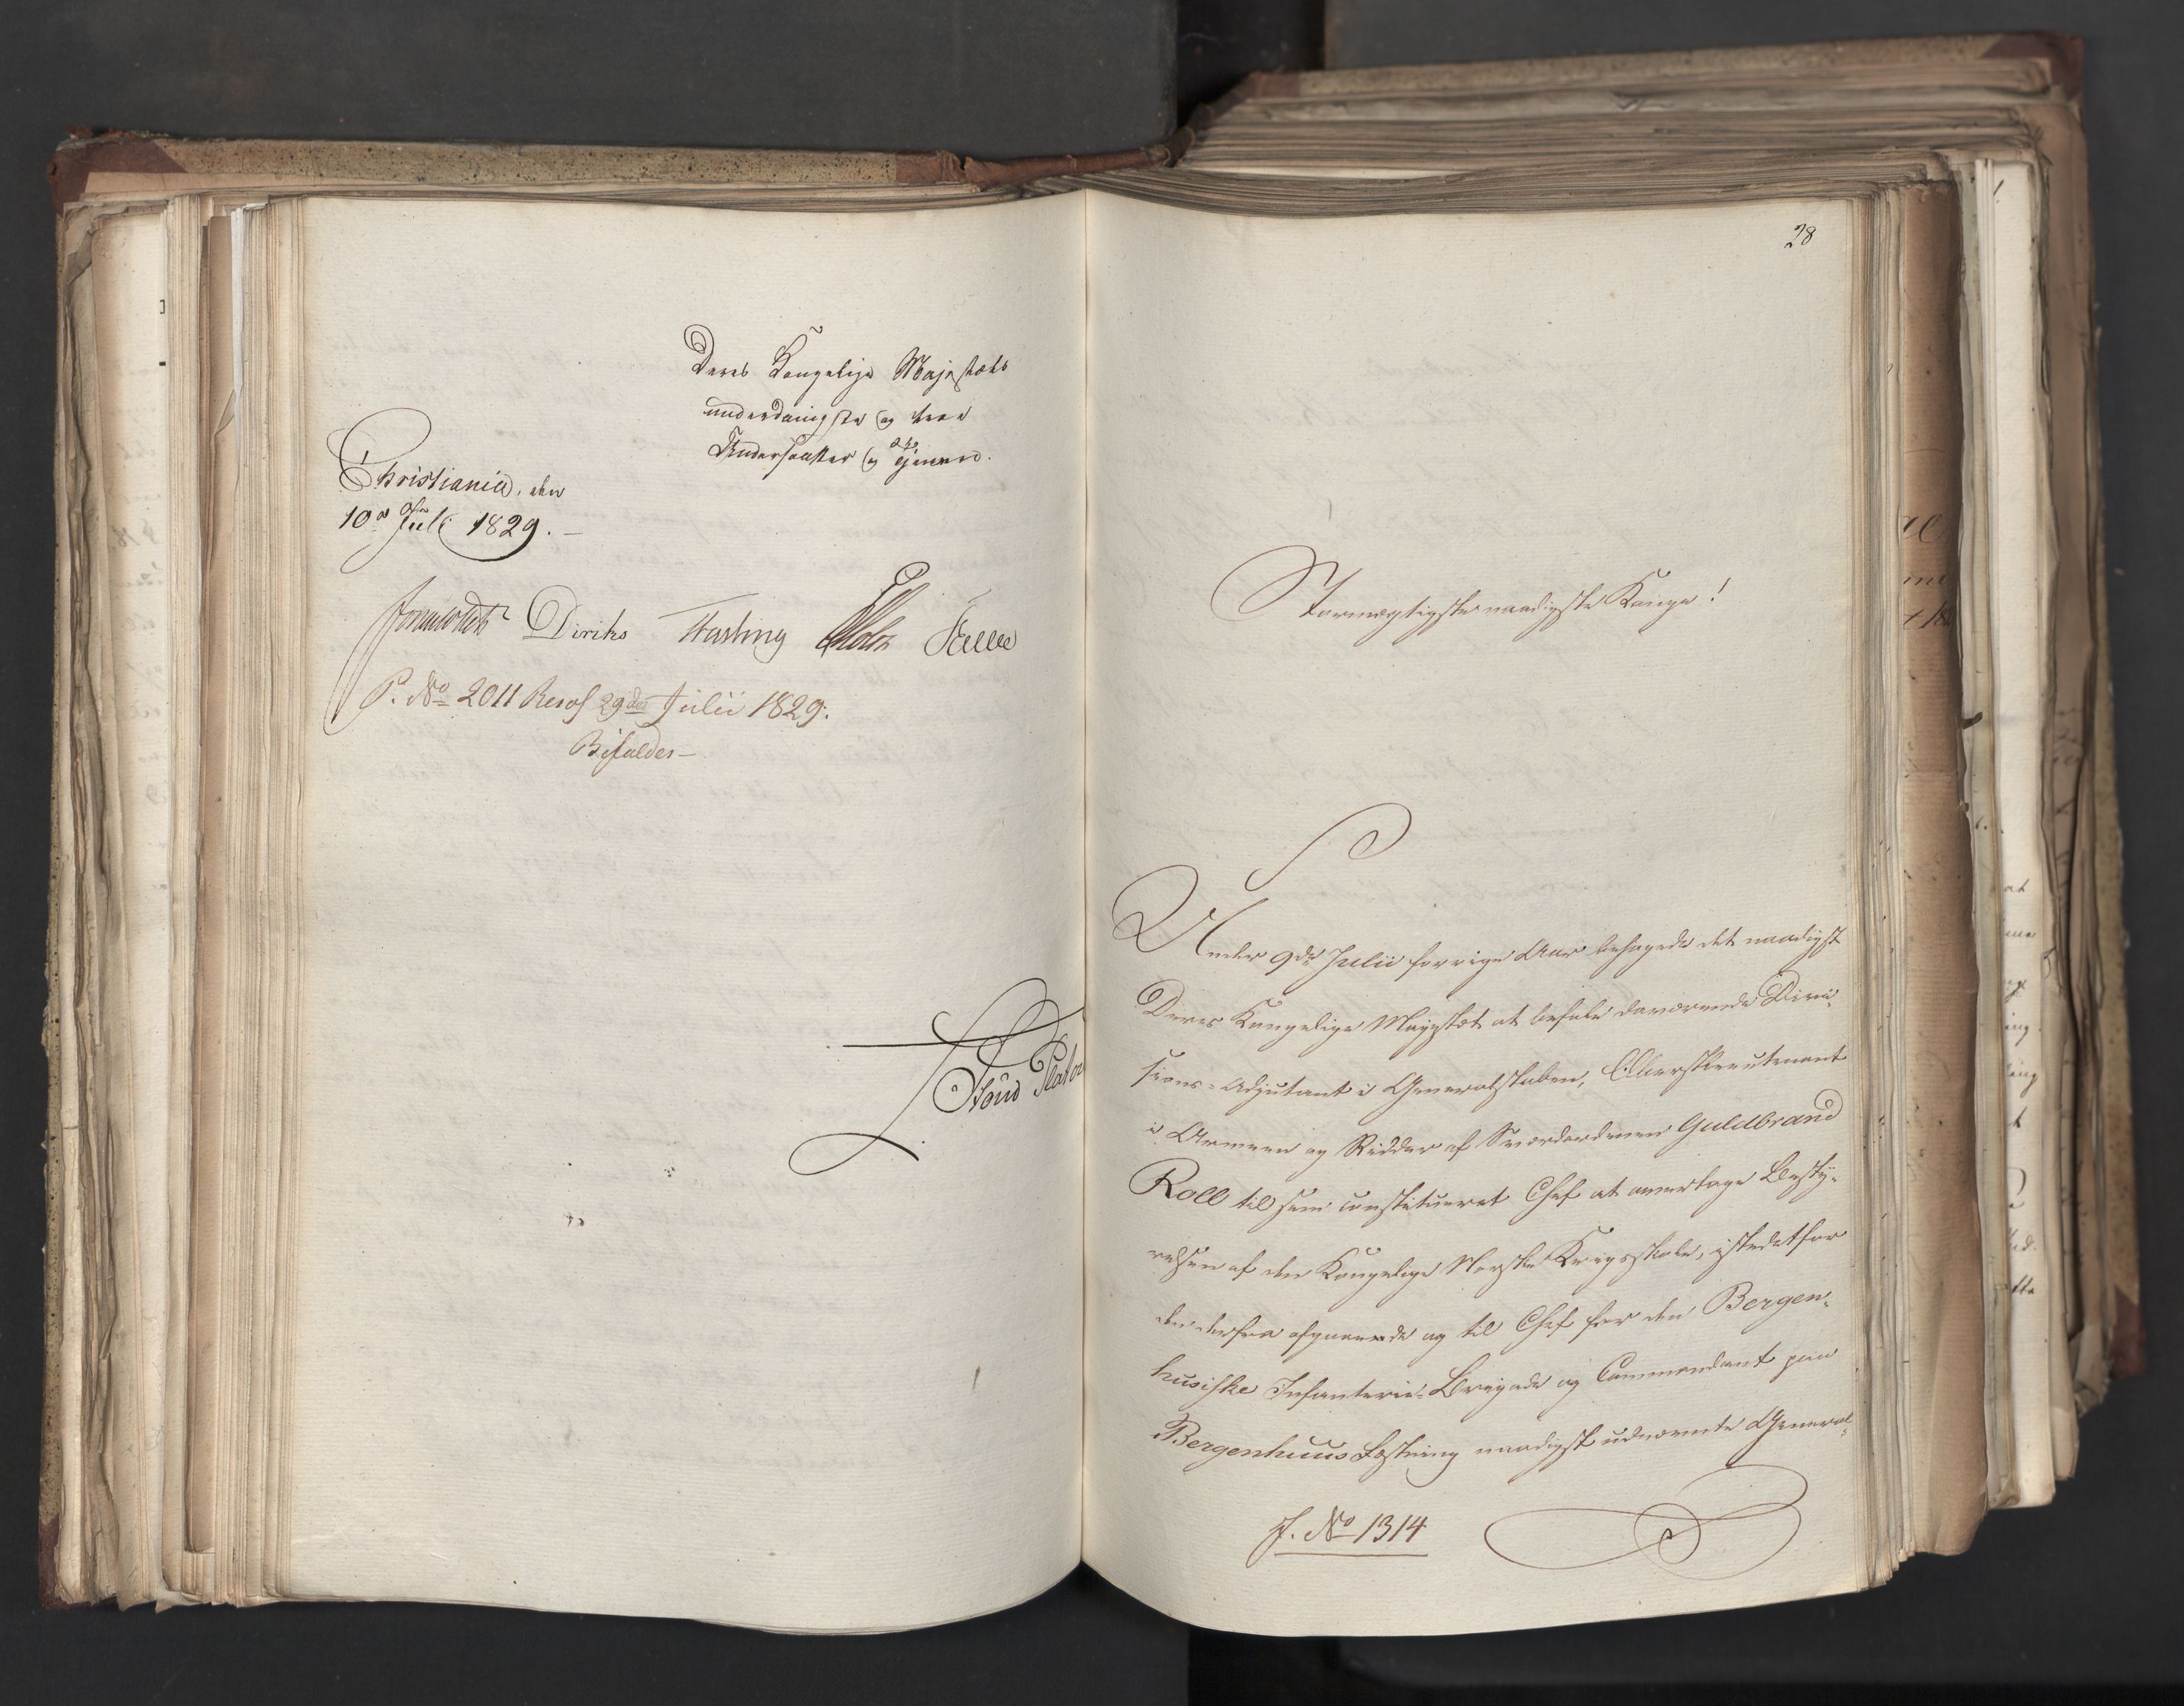 Deres Kongelige Majestæts
underdanigste og troe
Undersaatter og Tjenere.
Christiania, den
10de Juli 1829. –
Diriks Fasting Holst
P. No 2011 Resol 29de Julii 1829.
Bifaldes –
28
Stormægtigste naadigste Konge!
Under 9de Julii forrige Aar behagede det naadigst
Deres Kongelige Majestæt at befale daværende Divi-
sions-Adjutant i Generalstaben, Oberstlieutenant
i Armeen og Ridder af Sværdordenen Guldbrand
Roll til som constitueret Chef at overtage Besty-
relsen af den Kongelige Norske Krigsskole, istedetfor
den derfra afgaaende og til Chef for den Bergen-
husiske Infanterie-Brigade og Commendant paa
Bergenhuus Fæstning naadigst udnævnte General-
J. No 1314